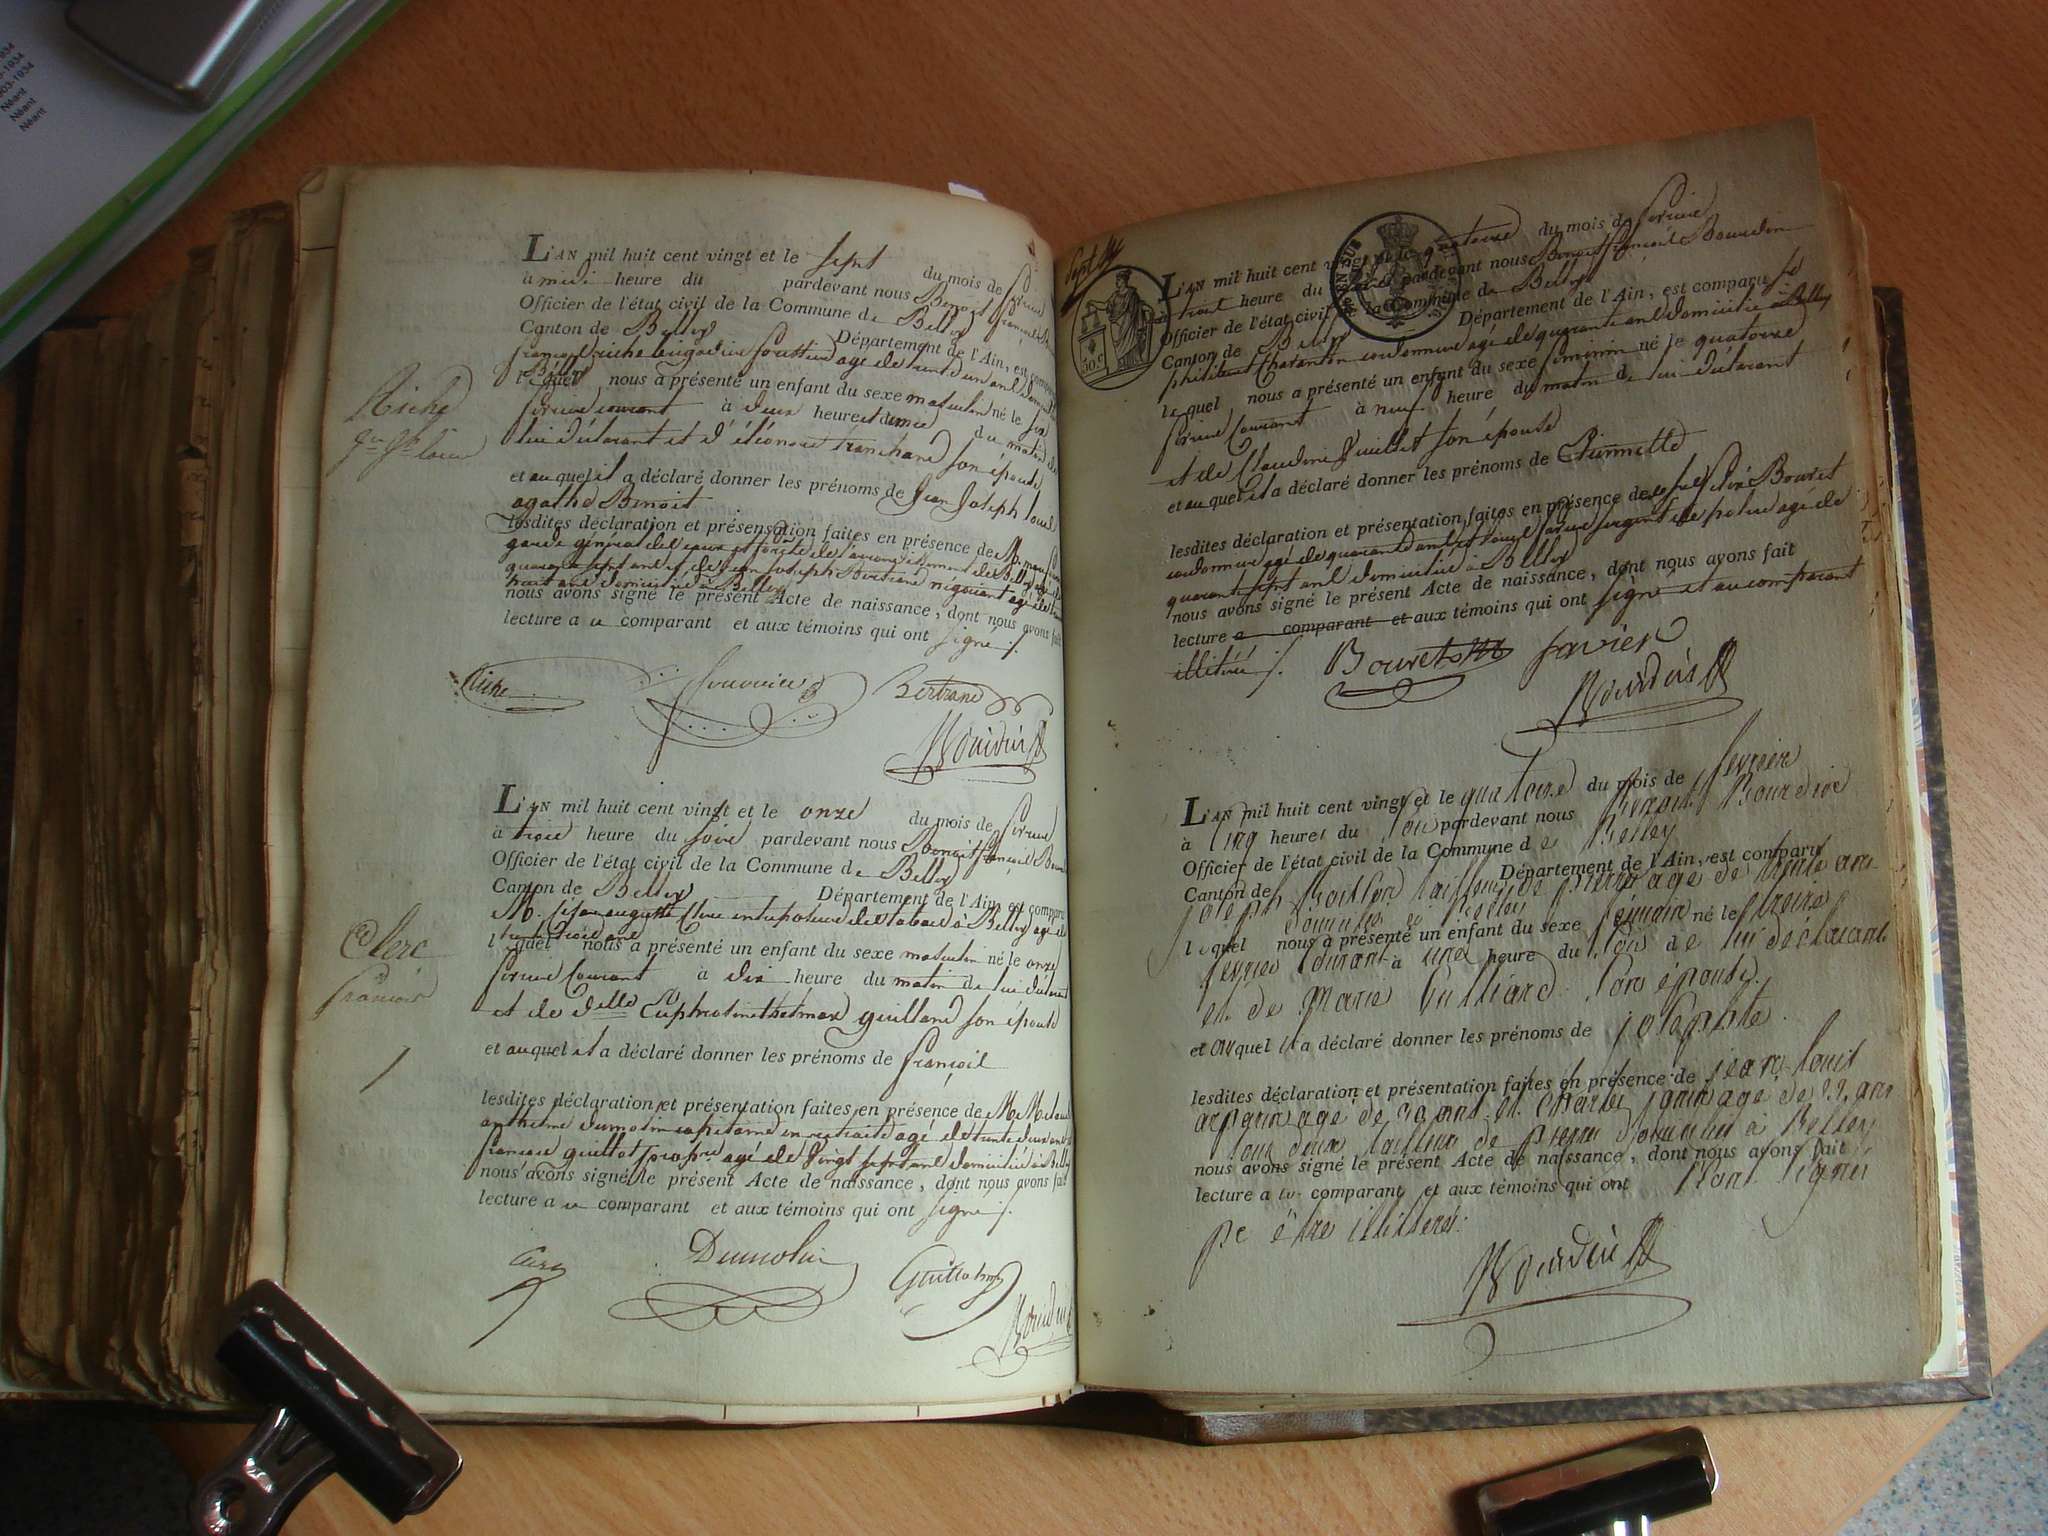 Néant
Néant
L'AN mil huit cent vingt et le sept du mois de février
à midi heure du pardevant nous Benoit françois
Officier de l'état civil de la Commune de Belley
Canton de Belley Département de l'Ain, est comparu
françois riche brigadier forestier agé de trente un ans
Belley
lequel nous a présenté un enfant du sexe masculin né le six
Riche
février courant à deux heure et demie du matin de
lui déclarant et d'éléonore tranchand son épouse
et auquel il a déclaré donner les prénoms de Jean Joseph Louis
agathe Benoit
lesdites déclaration et présensation faites en présence de M.
garde général des eaux et forêts de l'arrondissement de Belley agé de
quarante sept ans et de Joseph Bertrand négociant agé de
huit ans domicilié à Belley
nous avons signé le présent Acte de naissance, dont nous avons fait
lecture a ce comparant et aux témoins qui ont signé
Riche Bertrand
Bourdin
L'AN mil huit cent vingt et le onze du mois de février
à trois heure du soir pardevant nous Benoit françois
Officier de l'état civil de la Commune de Belley
Canton de Belley Département de l'Ain, est comparu
M. César auguste Clerc entreposeur des tabacs à Belley agé de
trente trois ans
lequel nous a présenté un enfant du sexe masculin né le onze
Clerc
françois
février Courant à dix heure du matin de lui déclarant
et de delle guilland son épouse
et auquel il a déclaré donner les prénoms de françois
lesdites déclaration et présentation faites en présence de M. M.
anthelme Dumolin capitaine en retraite agé de trente deux ans
françois guillot propre agé de vingt sept ans domicilié à Belley
nous avons signé le présent Acte de naissance, dont nous avons fait
lecture a ce comparant et aux témoins qui ont signé
Clerc Dumolin Guillot
Bourdin
Sept
30c
L'AN mil huit cent vingt et le quatorze du mois de février
à trois heure du soir pardevant nous Benoit françois Bourdin
Officier de l'état civil de la Commune de Belley
Canton de Belley Département de l'Ain, est comparu
philibert Charentin cordonnier agé de quarante ans domicilié à Belley
lequel nous a présenté un enfant du sexe féminin né le quatorze
février Courant à neuf heure du matin de lui déclarant
et de Claudine Vuillet son épouse
et auquel il a déclaré donner les prénoms de Etiennette
lesdites déclaration et présentation faites en présence de Bouret
cordonnier agé de quarante ans et savier sergent de police agé de
quarante sept ans domicilié à Belley
nous avons signé le présent Acte de naissance, dont nous avons fait
lecture a comparant et aux témoins qui ont signé et au comparant
illitéré
Bouret savier
Bourdin
L'AN mil huit cent vingt et le quatorze du mois de fevrier
à Cinq heures du soir pardevant nous Benoit Bourdin
Officier de l'état civil de la Commune de Belley
Canton de Département de l'Ain, est comparu
joseph tailleur de pierre agé de trente ans
domicilié à Belley
lequel nous a présenté un enfant du sexe féminin né le treize
fevrier Courant à une heure du soir de lui déclarant
et de Marie Vulliard son épouse
et auquel il a déclaré donner les prénoms de josephte
lesdites déclaration et présentation faites en présence de jean louis
agé de 30 ans et Charles janin agé de 22 ans
tous deux tailleur de pierre domicilié à Belley
nous avons signé le présent Acte de naissance, dont nous avons fait
lecture a comparant et aux témoins qui ont n'ont signés
pr être illitterés
Bourdin